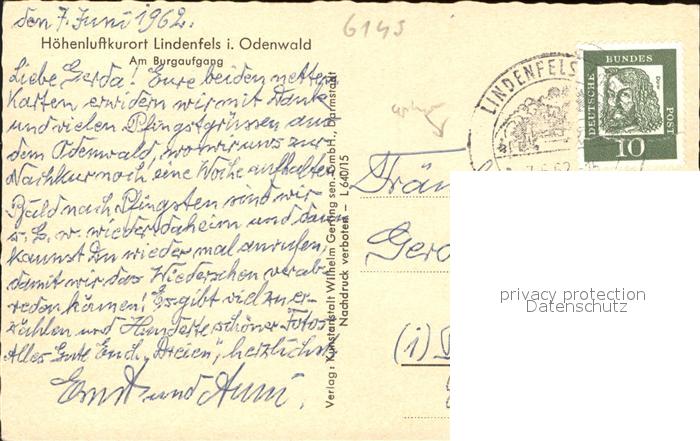 den 7. Juni 1962.
6145
Höhenluftkurort Lindenfels i. Odenwald
Am Burgaufgang
Liebe Gerda! Eure beiden netten
Karten erwidern wir mit Dank
und vielen Pfingstgrüssen aus
dem Odenwald, wo wir uns zur
Nachkur noch eine Woche aufhalten.
Bald nach Pfingsten sind wir
s. G. w. wieder daheim und dann
kannst Du wieder mal anrufen,
damit wir das Wiedersehen verab-
reden können! Es gibt viel zu er-
zählen und Hunderte schöner Fotos.
Alles Gute Euch „Dreien", herzlichst
Ernst und Anni.
Verlag: Kunstanstalt Wilhelm Gerling sen. G.m.b.H., Darmstadt
Nachdruck verboten – L 640/15
LINDENFELS
7.6.62
DEUTSCHE BUNDES POST
Dürer
10
Fräu
Gerd
(i)
privacy protection
Datenschutz